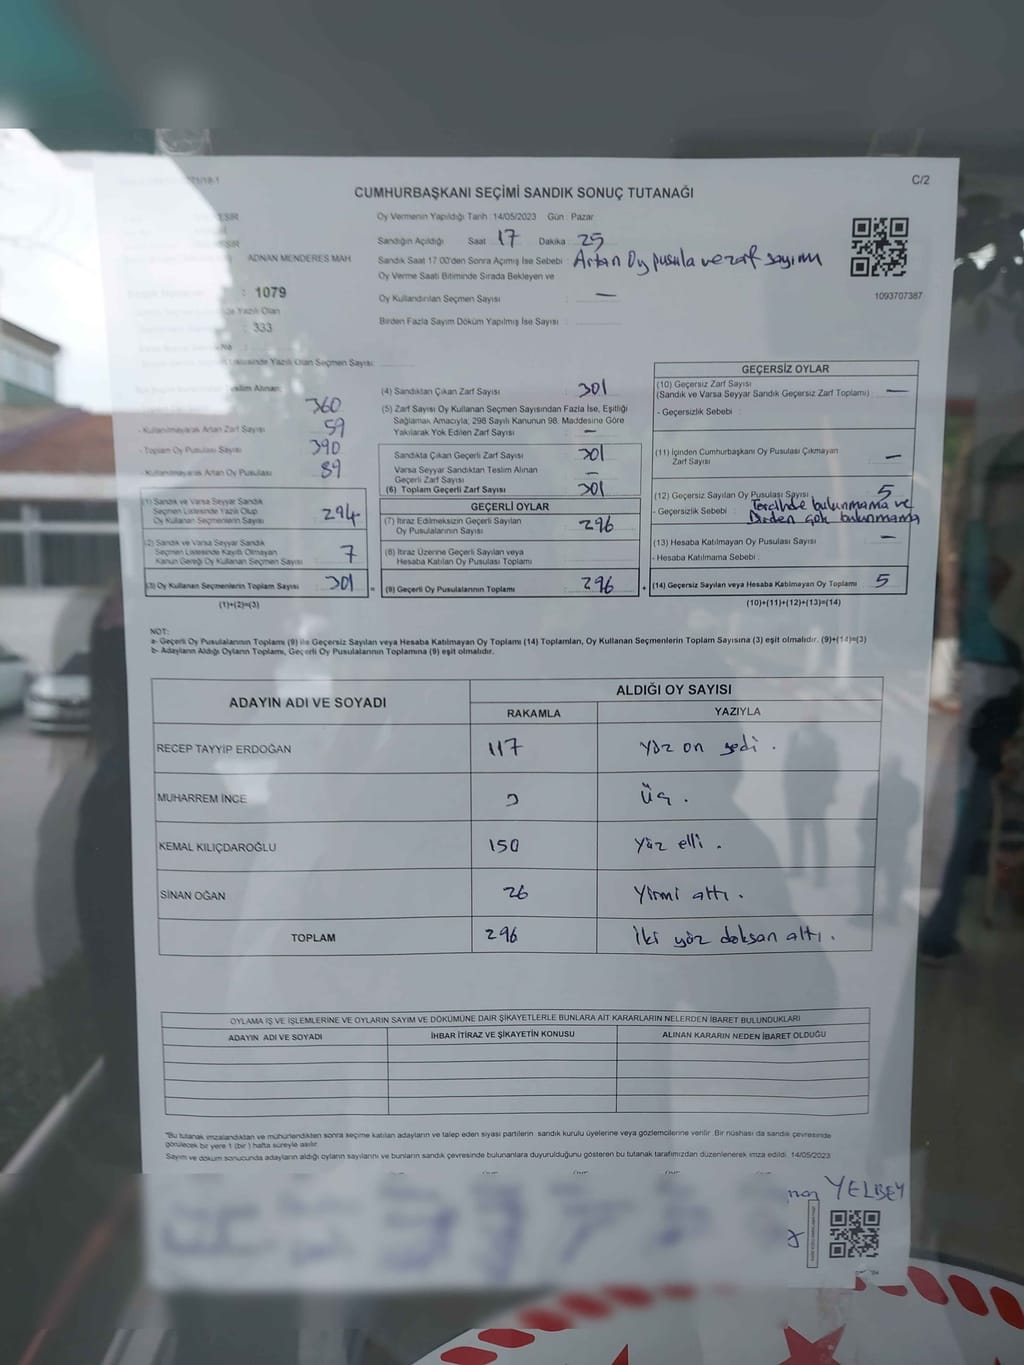 C/2
CUMHURBAŞKANI SEÇİMİ SANDIK SONUÇ TUTANAĞI
Oy Vermenin Yapıldığı Tarih : 14/05/2023 Gün : Pazar
Sandığın Açıldığı Saat 17 Dakika 25
ADNAN MENDERES MAH
Sandık Saat 17:00'den Sonra Açılmış İse Sebebi : Artan Oy pusula ve zarf sayımı
Oy Verme Saati Bitiminde Sırada Bekleyen ve
Oy Kullandırılan Seçmen Sayısı : —
: 1079
1093707387
Birden Fazla Sayım Döküm Yapılmış İse Sayısı :
: 333
Yazılı Olan Seçmen Sayısı:
Teslim Alınan:
360
- Kullanılmayarak Artan Zarf Sayısı 59
- Toplam Oy Pusulası Sayısı 390
- Kullanılmayarak Artan Oy Pusulası 89
(1) Sandık ve Varsa Seyyar Sandık
Seçmen Listesinde Yazılı Olup
Oy Kullanan Seçmenlerin Sayısı 294
(2) Sandık ve Varsa Seyyar Sandık
Seçmen Listesinde Kayıtlı Olmayan
Kanun Gereği Oy Kullanan Seçmen Sayısı 7
(3) Oy Kullanan Seçmenlerin Toplam Sayısı 301 =
(1)+(2)=(3)
(4) Sandıktan Çıkan Zarf Sayısı 301
(5) Zarf Sayısı Oy Kullanan Seçmen Sayısından Fazla İse, Eşitliği
Sağlamak Amacıyla, 298 Sayılı Kanunun 98. Maddesine Göre
Yakılarak Yok Edilen Zarf Sayısı —
Sandıkta Çıkan Geçerli Zarf Sayısı 301
Varsa Seyyar Sandıktan Teslim Alınan
Geçerli Zarf Sayısı —
(6) Toplam Geçerli Zarf Sayısı 301
GEÇERLİ OYLAR
(7) İtiraz Edilmeksizin Geçerli Sayılan
Oy Pusulalarının Sayısı 296
(8) İtiraz Üzerine Geçerli Sayılan veya
Hesaba Katılan Oy Pusulası Toplamı
(9) Geçerli Oy Pusulalarının Toplamı 296 +
GEÇERSİZ OYLAR
(10) Geçersiz Zarf Sayısı
(Sandık ve Varsa Seyyar Sandık Geçersiz Zarf Toplamı) —
- Geçersizlik Sebebi :
(11) İçinden Cumhurbaşkanı Oy Pusulası Çıkmayan
Zarf Sayısı —
(12) Geçersiz Sayılan Oy Pusulası Sayısı 5
- Geçersizlik Sebebi : Tercihde bulunmama ve
Birden çok bulunmama
(13) Hesaba Katılmayan Oy Pusulası Sayısı —
- Hesaba Katılmama Sebebi :
(14) Geçersiz Sayılan veya Hesaba Katılmayan Oy Toplamı 5
(10)+(11)+(12)+(13)=(14)
NOT:
a- Geçerli Oy Pusulalarının Toplamı (9) ile Geçersiz Sayılan veya Hesaba Katılmayan Oy Toplamı (14) Toplamları, Oy Kullanan Seçmenlerin Toplam Sayısına (3) eşit olmalıdır. (9)+(14)=(3)
b- Adayların Aldığı Oyların Toplamı, Geçerli Oy Pusulalarının Toplamına (9) eşit olmalıdır.
ADAYIN ADI VE SOYADI ALDIĞI OY SAYISI
RAKAMLA YAZIYLA
RECEP TAYYİP ERDOĞAN 117 Yüz on yedi .
MUHARREM İNCE 3 Üç .
KEMAL KILIÇDAROĞLU 150 Yüz elli .
SİNAN OĞAN 26 Yirmi altı .
TOPLAM 296 İki yüz doksan altı .
OYLAMA İŞ VE İŞLEMLERİNE VE OYLARIN SAYIM VE DÖKÜMÜNE DAİR ŞİKAYETLERLE BUNLARA AİT KARARLARIN NELERDEN İBARET BULUNDUKLARI
ADAYIN ADI VE SOYADI İHBAR İTİRAZ VE ŞİKAYETİN KONUSU ALINAN KARARIN NEDEN İBARET OLDUĞU
"Bu tutanak imzalandıktan ve mühürlendikten sonra seçime katılan adayların ve talep eden siyasi partilerin sandık kurulu üyelerine veya gözlemcilerine verilir. Bir nüshası da sandık çevresinde
görülecek bir yere 1 (bir) hafta süreyle asılır.
Sayım ve döküm sonucunda adayların aldığı oyların sayılarını ve bunların sandık çevresinde bulunanlara duyurulduğunu gösteren bu tutanak tarafımızdan düzenlenerek imza edildi. 14/05/2023
YELBEY